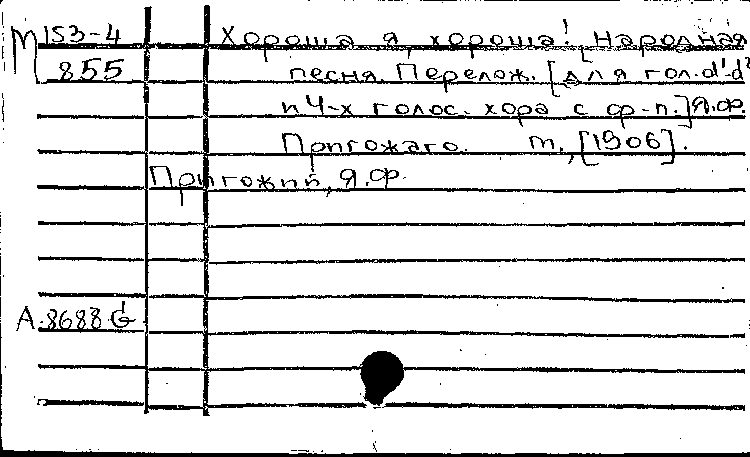 М 153-4 Хороша я, хороша! Народная
855 песня. Перелож. [для гол. d¹-d²
и 4-х голос. хора с ф-п.] Я.Ф.
Пригожаго. М., [1906].
Пригожий, Я.Ф.
А.8688